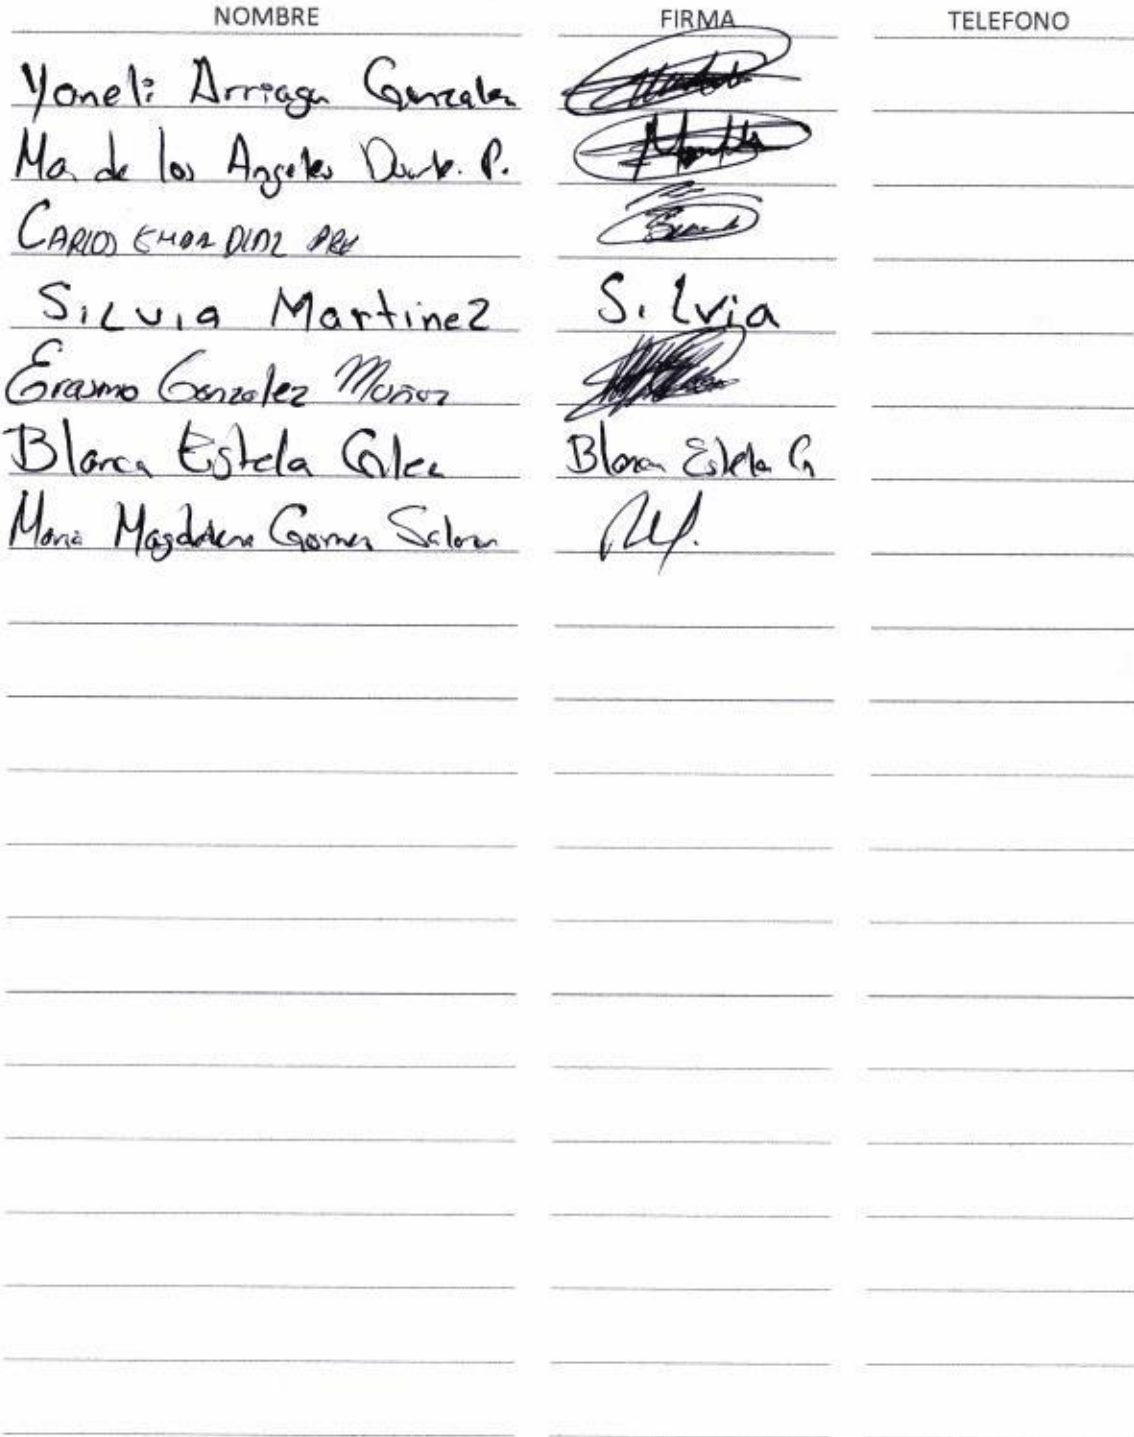 NOMBRE FIRMA TELEFONO
Yoneli Arriaga Gonzalez
Ma de los Angeles P.
CARLOS DIAZ
SiLvia Martinez Silvia
Erasmo Gonzalez Muñoz
Blanca Estela Blanca Estela G
Maria Magdalena Gomez